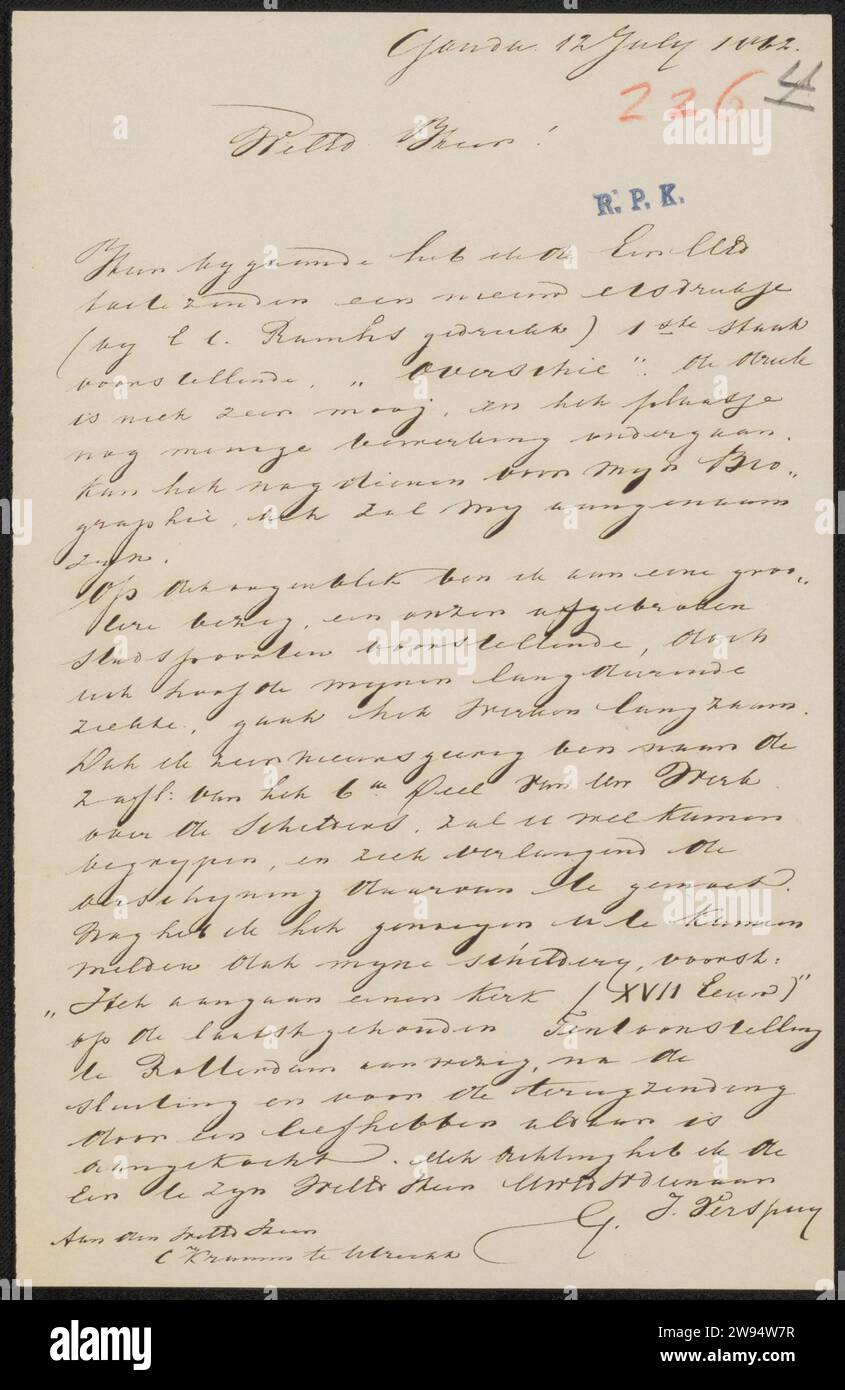 Gouda 12 July 1862.
226 4
WelEd Heer!
R. P. K.
Hier bygaande heb ik de Eer UEd
toe te zenden een nieuw etsdrukje
(by C. C. gedrukt) 1ste staat
voorstellende, „Overschie". de druk
is niet zeer mooj, en het plaatje
nog menige bewerking ondergaan.
kan het nog dienen voor myn Bio„
graphie, het zal my aangenaam
zyn.
Op dit oogenblik ben ik aan eene groo„
tere bezig, een onzer afgebroken
stadspoorten voorstellende, doch
uit hoofde myner langdurende
ziekte, gaat het werken langzaam.
Dat ik zeer nieuwsgierig ben naar de
2 afl: van het 6de Deel van Uw Werk
over de Schilders, zal u wel kunnen
begrypen, en ziet verlangend de
verschyning daarvan te gemoet.
Nog heb ik het genoegen u te kunnen
melden dat myne schildery, voorst:
„Het aangaan eener Kerk (XVII Eeuw)"
op de laatst gehouden Tentoonstelling
te Rotterdam aanwezig, na de
sluiting en voor de terugzending
door een liefhebber aldaar is
aangekocht. Met Achting heb ik de
Eer te zyn WelEd Heer UwEd Dienaar
G. J. Verspuy
Aan den WelEd Heer
C Kramm te Utrecht
alamy
alamy
Image ID: 2W94W7R
www.alamy.com